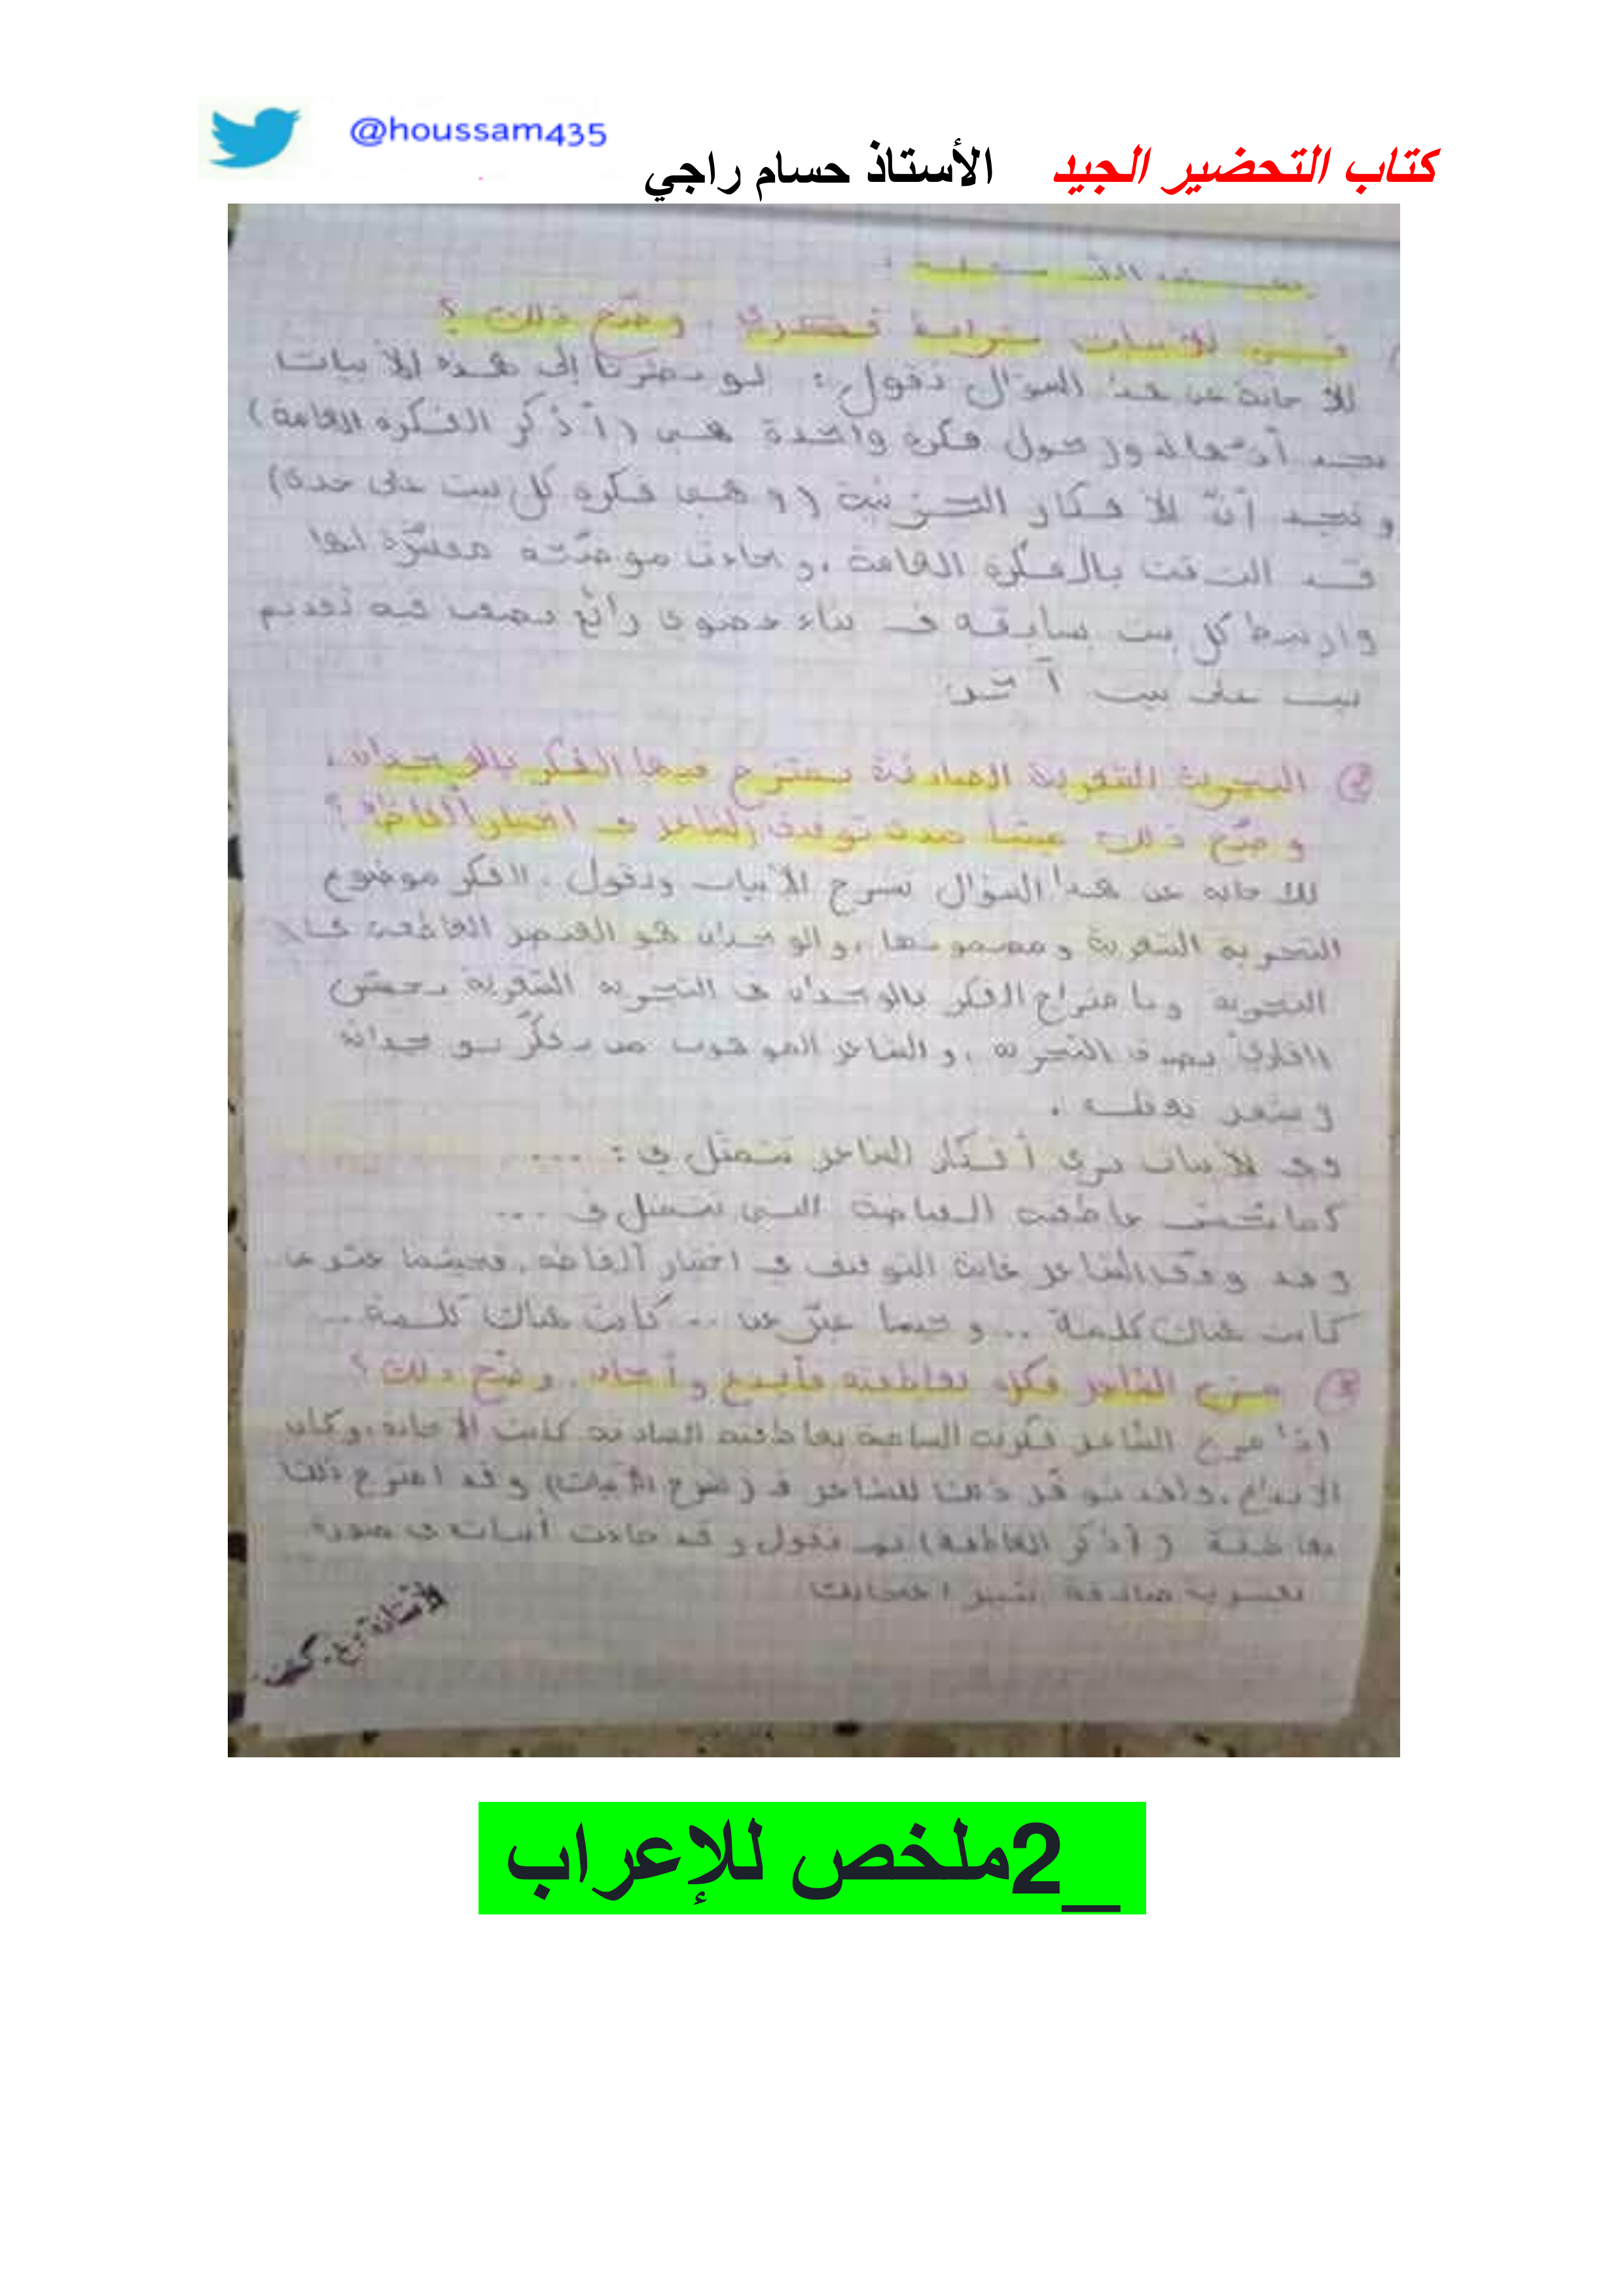 @houssam435
كتاب التحضير الجيد الأستاذ حسام راجي
في الأبيات ترابط فكري. وضّح ذلك؟
للإجابة عن هذا السؤال نقول: لو نظرنا إلى هذه الأبيات
نجد أنها تدور حول فكرة واحدة هي (أذكر الفكرة العامة)
ونجد أنّ الأفكار الجزئية (وهي فكرة كل بيت على حدى)
قد التفت بالفكرة العامة، وجاءت موضّحة مفسّرة لها
وارتبط كل بيت بسابقه في بناء عضوي رائع يصعب فيه تقديم
بيت على بيت آخر
② التجربة الشعرية الصادقة يمتزج فيها الفكر بالوجدان.
وضّح ذلك مبينا مدى توفيق الشاعر في اختيار ألفاظه؟
للإجابة عن هذا السؤال نشرح الأبيات ونقول: الفكر موضوع
التجربة الشعرية ومضمونها، والوجدان هو العنصر العاطفي في
التجربة وبامتزاج الفكر بالوجدان في التجربة الشعرية يحسّ
القارئ بصدق التجربة، والشاعر الموهوب من يفكّر بوجدانه
ويشعر بعقله.
وفي الأبيات نرى أفكار الشاعر تتمثل في: ...
كما عاطفته التي تتمثل في ...
وقد وفّق الشاعر غاية التوفيق في اختيار ألفاظه، فحينما عبّر عن
كانت هناك كلمة .. وحينما عبّر عن .. كانت هناك كلمة ..
③ مزج الشاعر فكره بعاطفته فأبدع وأجاد. وضّح ذلك؟
إذا مزج الشاعر فكرته بعاطفته كانت الإجادة، وكان
الإبداع، ولقد توفّر ذلك للشاعر في (شرح الأبيات) وقد امتزج ذلك
بعاطفة (أذكر العاطفة) ثم نقول وقد جاءت أبياته في صورة
شعرية صادقة تثير
الأستاذة:
_2ملخص للإعراب